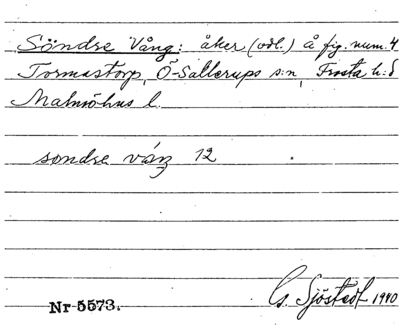 Söndre Vång: åker (odl.) å fig. num. 4
Tormastorp, Ö-Sallerups s:n, Frosta h:d
Malmöhus l.
søndre váŋ 12
Nr 5573.
G. Sjöstedt 1940